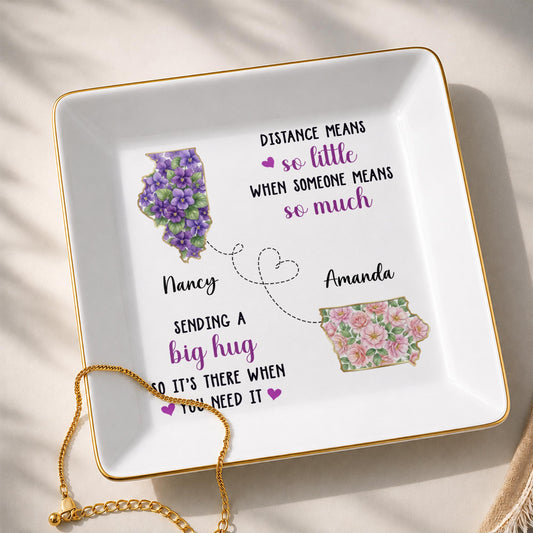 DISTANCE MEANS
so little
WHEN SOMEONE MEANS
so much
Nancy
Amanda
SENDING A
big hug
SO IT'S THERE WHEN
YOU NEED IT